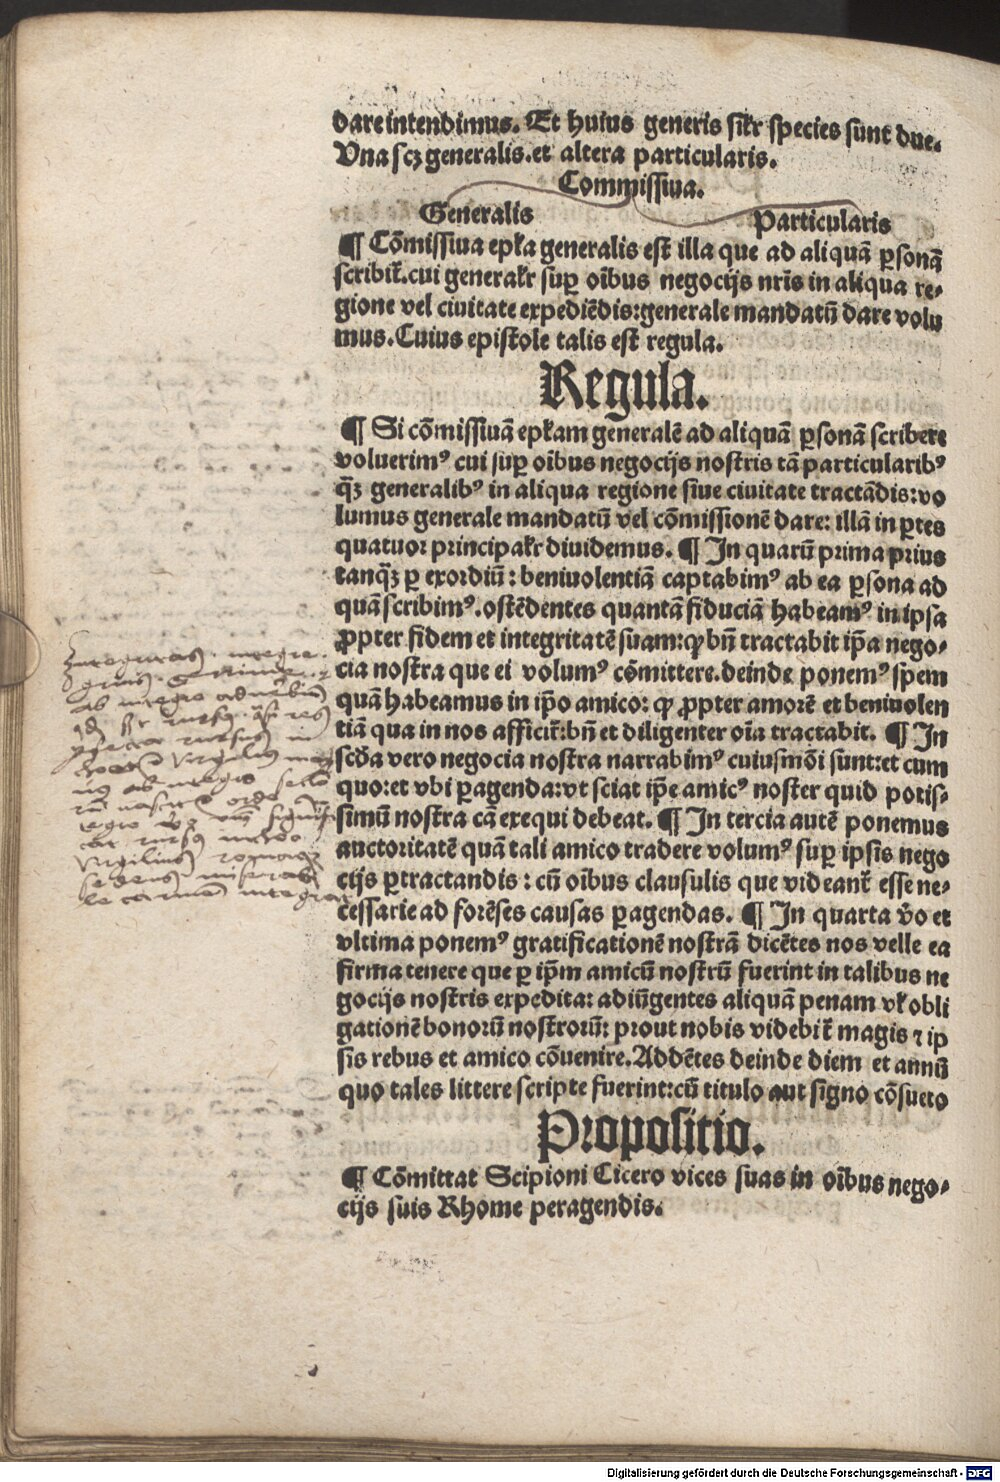 dare intendimus. Et huius generis silr̄ species sunt due.
Una scꝫ generalis. et altera particularis.
Commissiua.
Generalis Particularis
¶ Cōmissiua epl̄a generalis est illa que ad aliquā ꝑsonā
scribit̄. cui general̄r suꝑ oībus negocijs nr̄is in aliqua re-
gione vel ciuitate expediēdis: generale mandatū dare volu
mus. Cuius epistole talis est regula.
Regula.
¶ Si cōmissiuā epl̄am generalē ad aliquā ꝑsonā scribere
voluerimꝰ cui suꝑ oībus negocijs nostris tā particularibꝰ
qꝫ̄ generalibꝰ in aliqua regione siue ciuitate tractādis: vo
lumus generale mandatū vel cōmissionē dare: illā in ꝑtes
quatuor principal̄r diuidemus. ¶ In quarū prima prius
tanqꝫ̄ ꝑ exordiū: beniuolentiā captabimꝰ ab ea ꝑsona ad
quā scribimꝰ. ostēdentes quantā fiduciā habeamꝰ in ipsa
ꝓpter fidem et integritatē suam: ꝙ bn̄ tractabit ip̄a nego-
cia nostra que ei volumꝰ cōmittere. deinde ponemꝰ spem
quā habeamus in ip̄o amico: ꝙ ꝓpter amorē et beniuolen
tiā qua in nos afficit̄: bn̄ et diligenter oīa tractabit. ¶ In
scd̄a vero negocia nostra narrabimꝰ cuiusmōi sunt: et cum
quo: et vbi ꝑagenda: vt sciat ip̄e amicꝰ noster quid potis-
simū nostra cā exequi debeat. ¶ In tercia autē ponemus
auctoritatē quā tali amico tradere volumꝰ suꝑ ipsis nego
cijs ꝑtractandis: cū oībus clausulis que videant̄ esse ne-
cessarie ad forēses causas ꝑagendas. ¶ In quarta v̄o et
vltima ponemꝰ gratificationē nostrā dicētes nos velle ea
firma tenere que ꝑ ip̄m amicū nostrū fuerint in talibus ne
gocijs nostris expedita: adiūgentes aliquā penam vl̄ obli
gationē bonorū nostrorū: prout nobis videbit̄ magis ⁊ ip
sis rebus et amico cōuenire. Addētes deinde diem et annū
quo tales littere scripte fuerint: cū titulo aut signo cōsueto
Propositio.
¶ Cōmittat Scipioni Cicero vices suas in oībus nego-
cijs suis Rhome peragendis.
ab integro
Virgilius
ab integro
nascit ordo
Virgilius
Digitalisierung gefördert durch die Deutsche Forschungsgemeinschaft - DFG